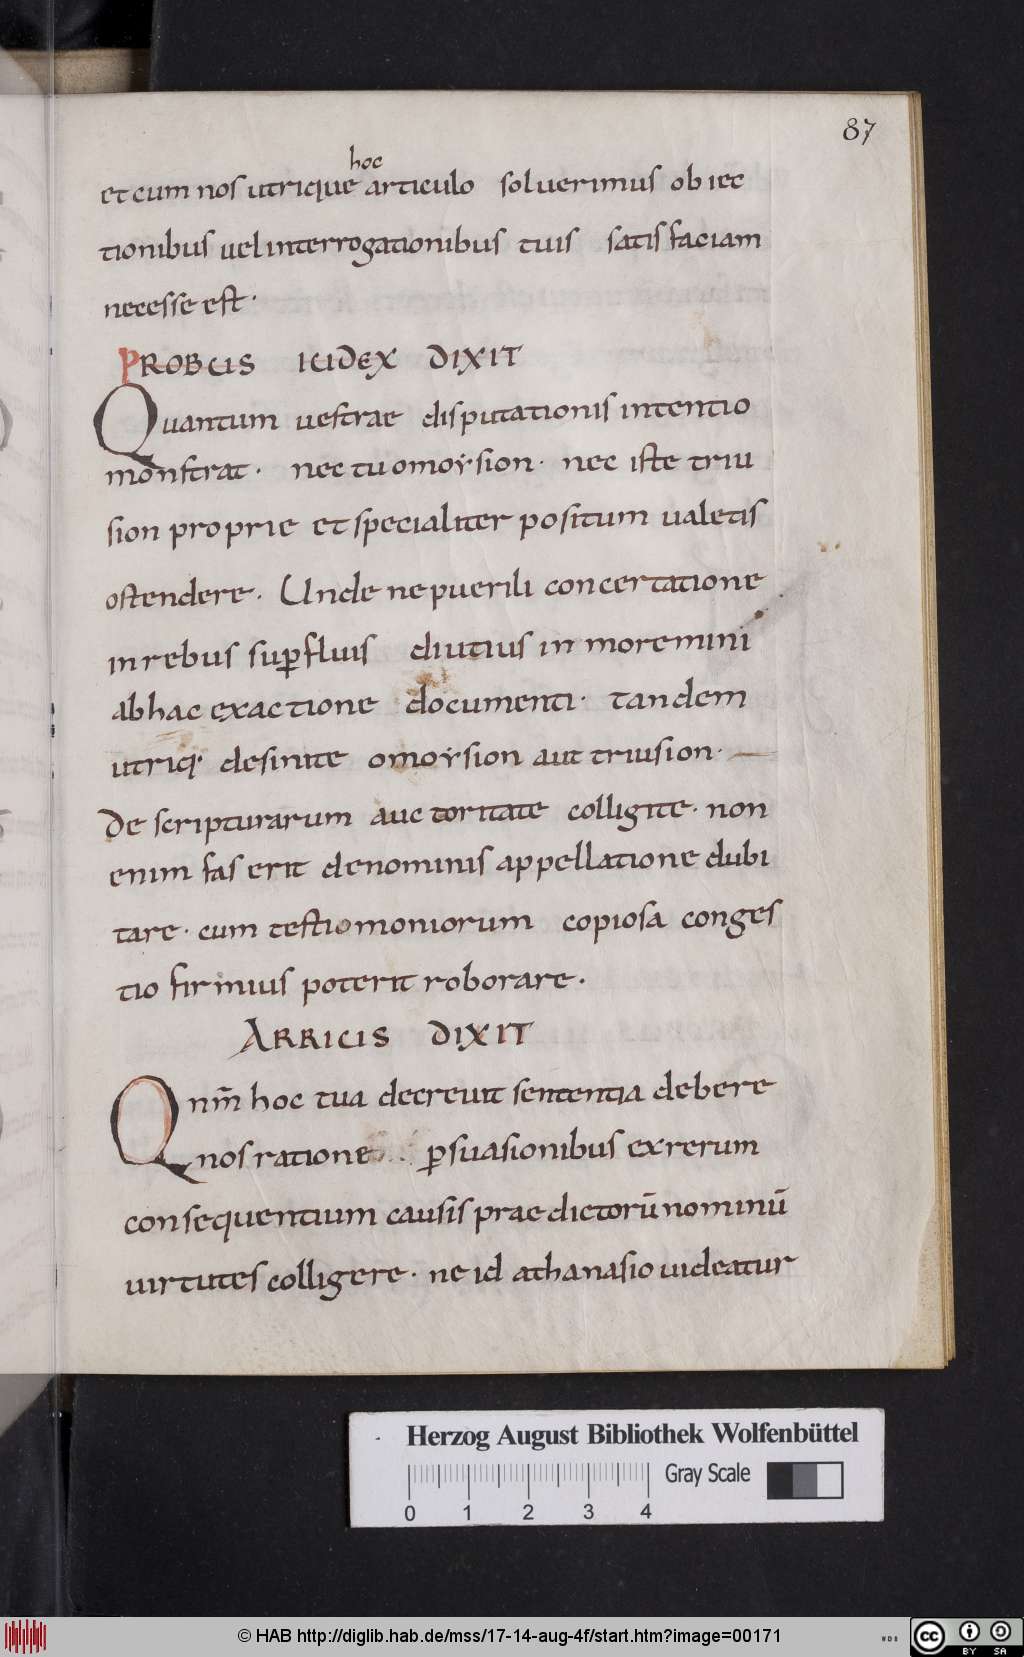 87
hoc
et cum nos utrique articulo soluerimus obiec
tionibus uel interrogationibus tuis satis faciam
necesse est·
PROBUS IUDEX DIXIT
Quantum uestrae disputationis intentio
monstrat· nec tu omoysion· nec iste triu
sion proprie et specialiter positum ualetis
ostendere· Unde ne puerili concertatione
in rebus suꝑfluis diutius inmoremini
ab hac exactione documenti· tandem
utriq· desinite omoysion aut triusion·
De scripturarum auctoritate colligite· non
enim fas erit de nominis appellatione dubi
tare· cum testiomoniorum copiosa conges
tio firmius poterit roborare·
ARRIUS DIXIT
Qnm̄ hoc tua decreuit sententia debere
nos ratione ꝑsuasionibus ex rerum
consequentium causis praedictorū nominū
uirtutes colligere· ne id athanasio uideatur
Herzog August Bibliothek Wolfenbüttel
Gray Scale
0 1 2 3 4
© HAB http://diglib.hab.de/mss/17-14-aug-4f/start.htm?image=00171
WDB
cc BY SA